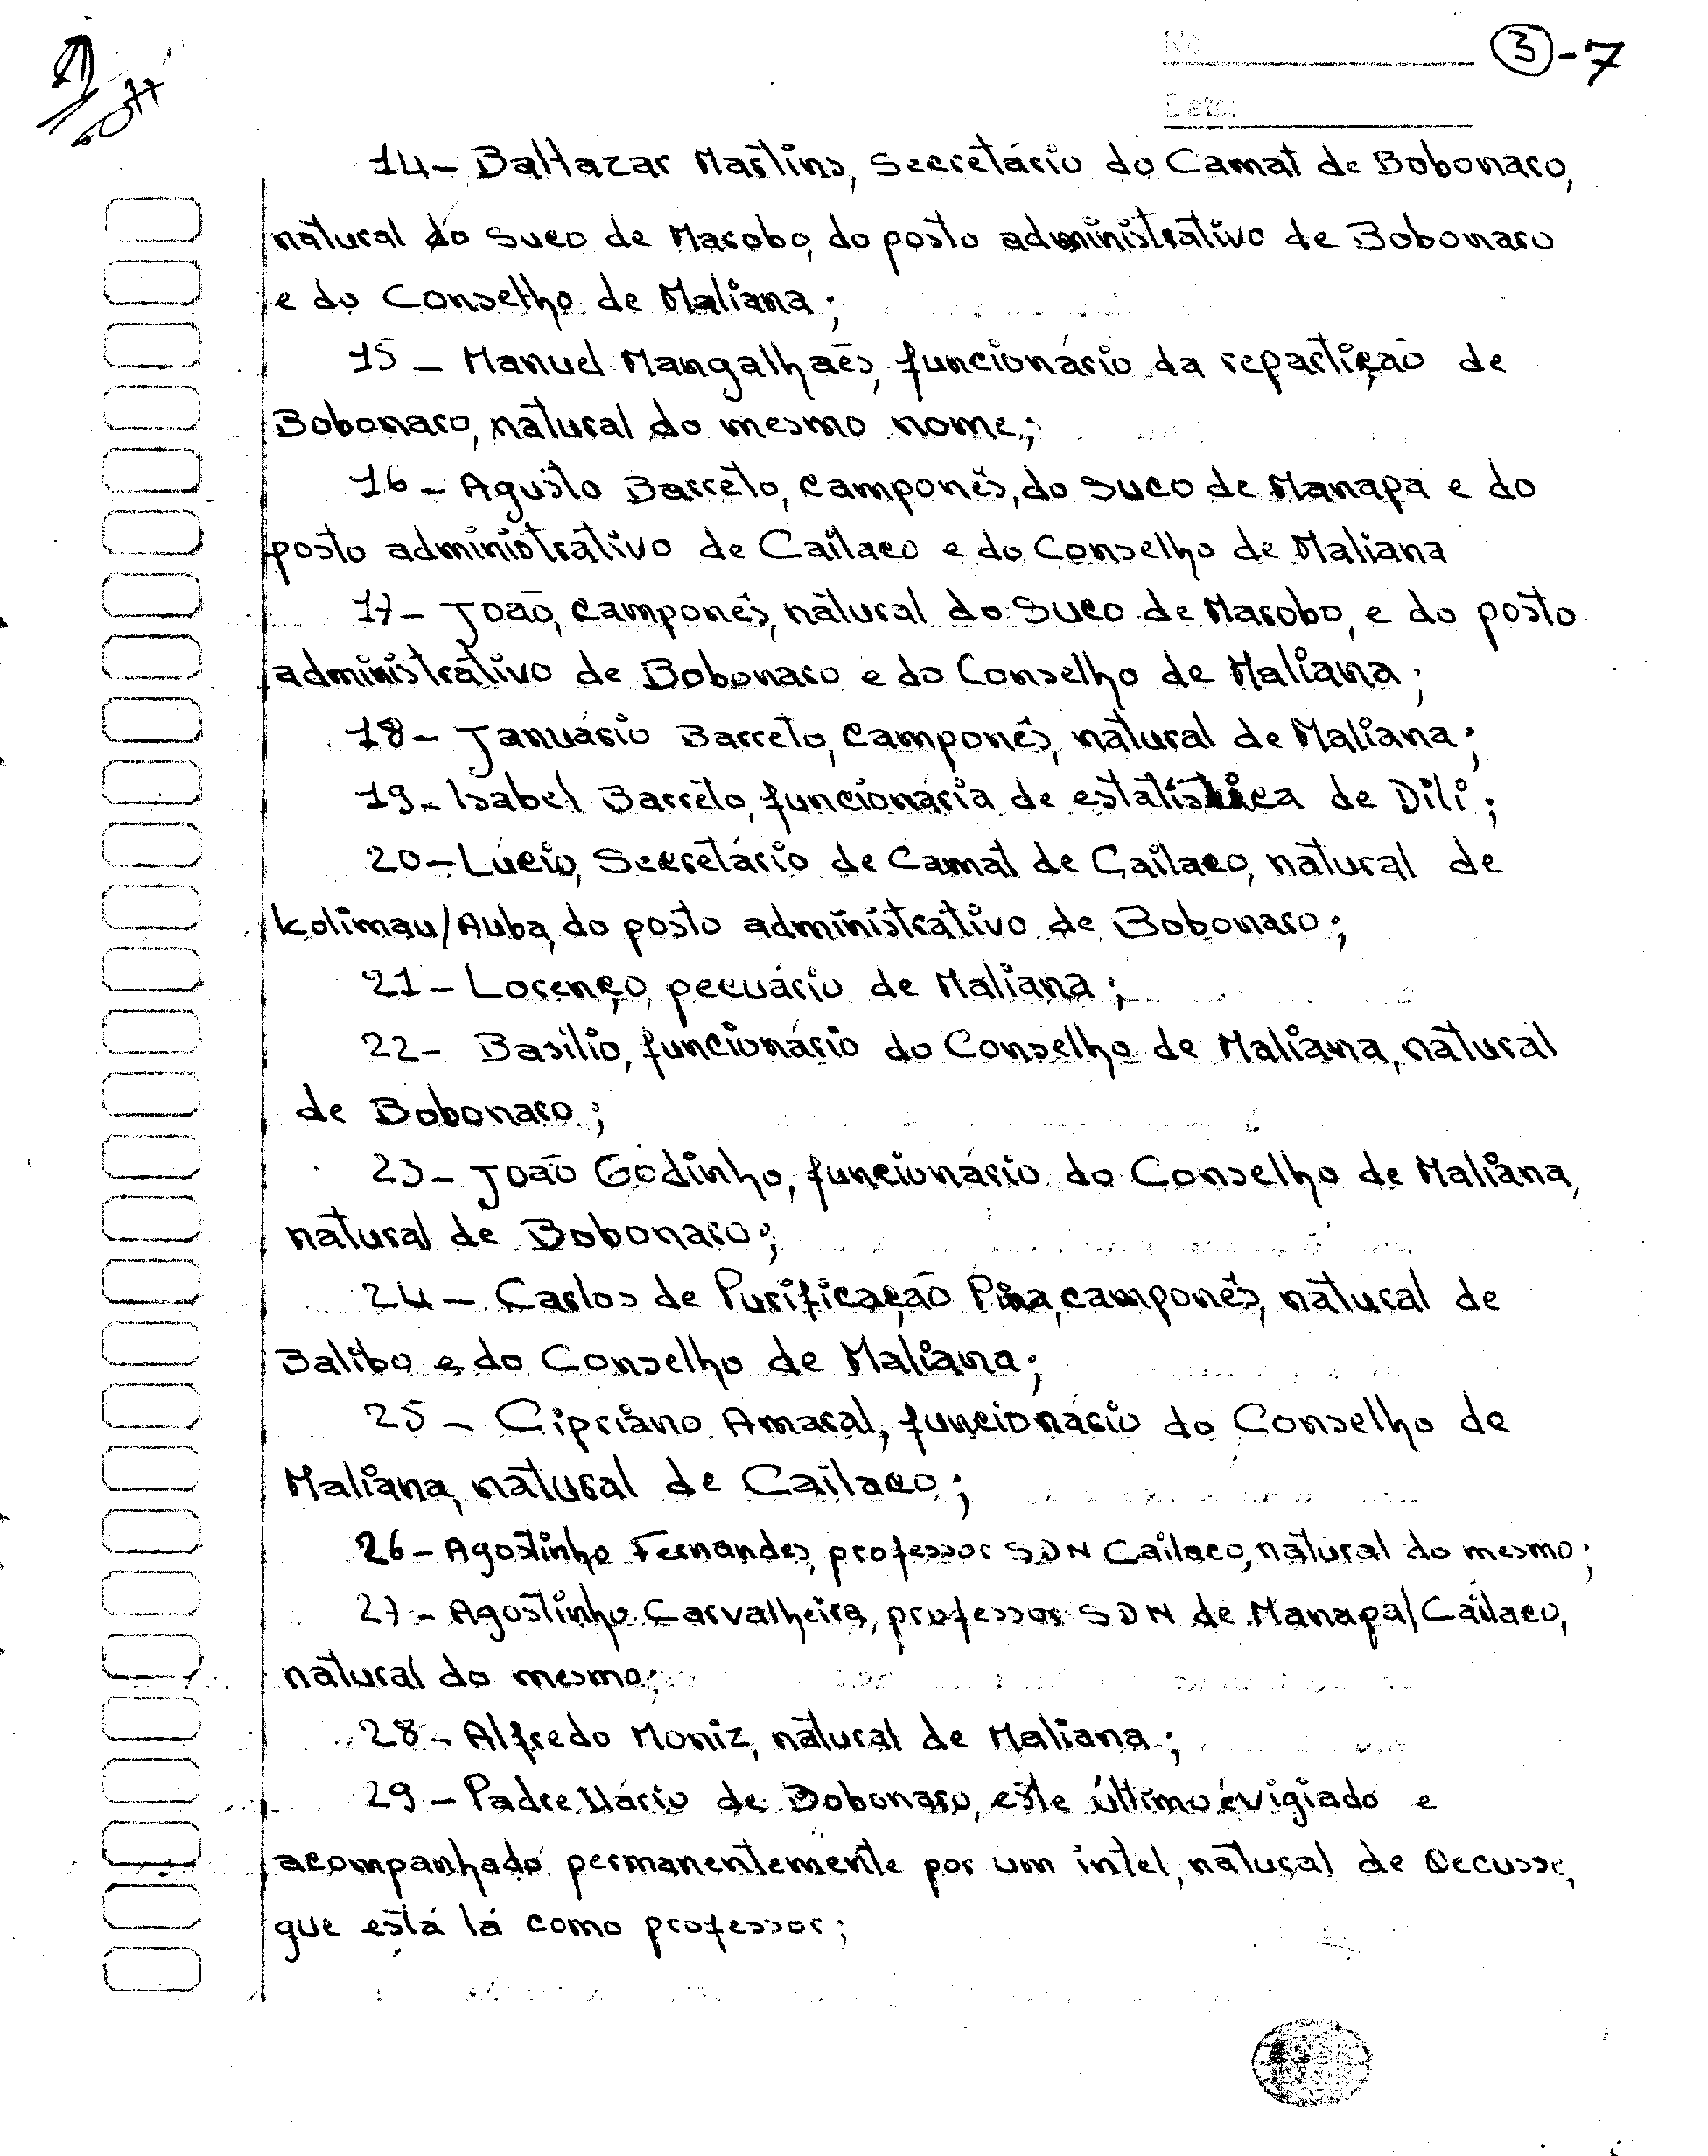 No. ③-7
Date:
14- Baltazar Martins, Secretário do Camat de Bobonaro,
natural do Suco de Marobo, do posto administrativo de Bobonaro
e do Conselho de Maliana;
15 - Manuel Mangalhaẽs, funcionário da repartição de
Bobonaro, natural do mesmo nome;
16 - Agusto Barreto, Camponês, do Suco de Manapa e do
posto administrativo de Cailaco e do Conselho de Maliana
17- João, Camponês, natural do Suco de Marobo, e do posto
administrativo de Bobonaro e do Conselho de Maliana;
18- Januário Barreto, Camponês, natural de Maliana;
19- Isabel Barreto, funcionária de estatística de Dili;
20-Lúcio, Secretário de Camat de Cailaco, natural de
Kolimau/Auba, do posto administrativo de Bobonaro;
21- Lorenço, pecuário de Maliana;
22- Basilio, funcionário do Conselho de Maliana, natural
de Bobonaro;
23- João Godinho, funcionário do Conselho de Maliana,
natural de Bobonaro;
24- Carlos de Purificação Pina, camponês, natural de
Balibo e do Conselho de Maliana;
25 - Cipriano Amaral, funcionário do Conselho de
Maliana, natural de Cailaco;
26- Agostinho Fernandes, professor SDN Cailaco, natural do mesmo;
27- Agostinho Carvalheira, professor SDN de Manapa/Cailaco,
natural do mesmo;
28- Alfredo Moniz, natural de Maliana;
29- Padre Mário de Bobonaro, este último é vigiado e
acompanhado permanentemente por um intel, natural de Oecusse,
que está lá como professor;